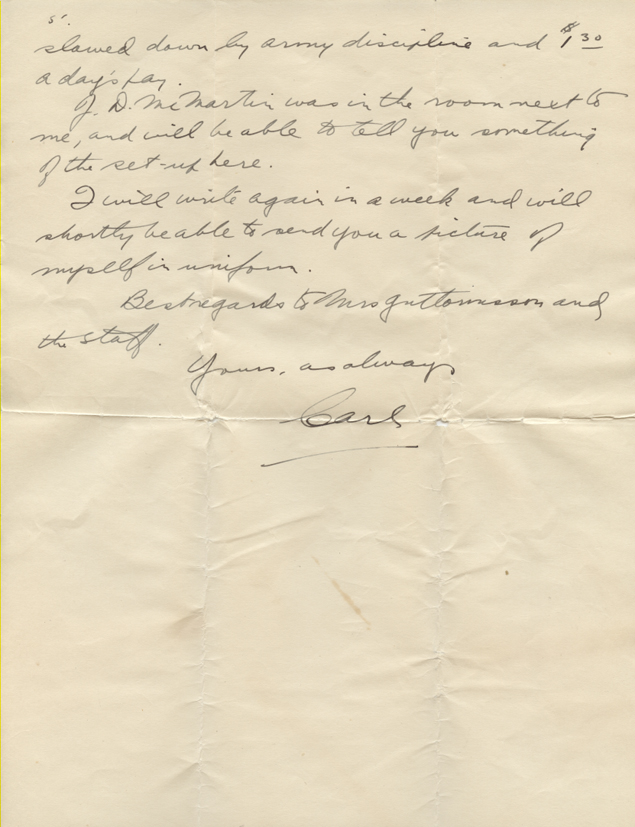 5.
slowed down by army discipline and $1 30
a day's pay.
J. D. McMartin was in the room next to
me, and will be able to tell you something
of the set-up here.
I will write again in a week and will
shortly be able to send you a picture of
myself in uniform.
Best regards to Mrs Guttormsson and
the staff.
Yours, as always
Carl